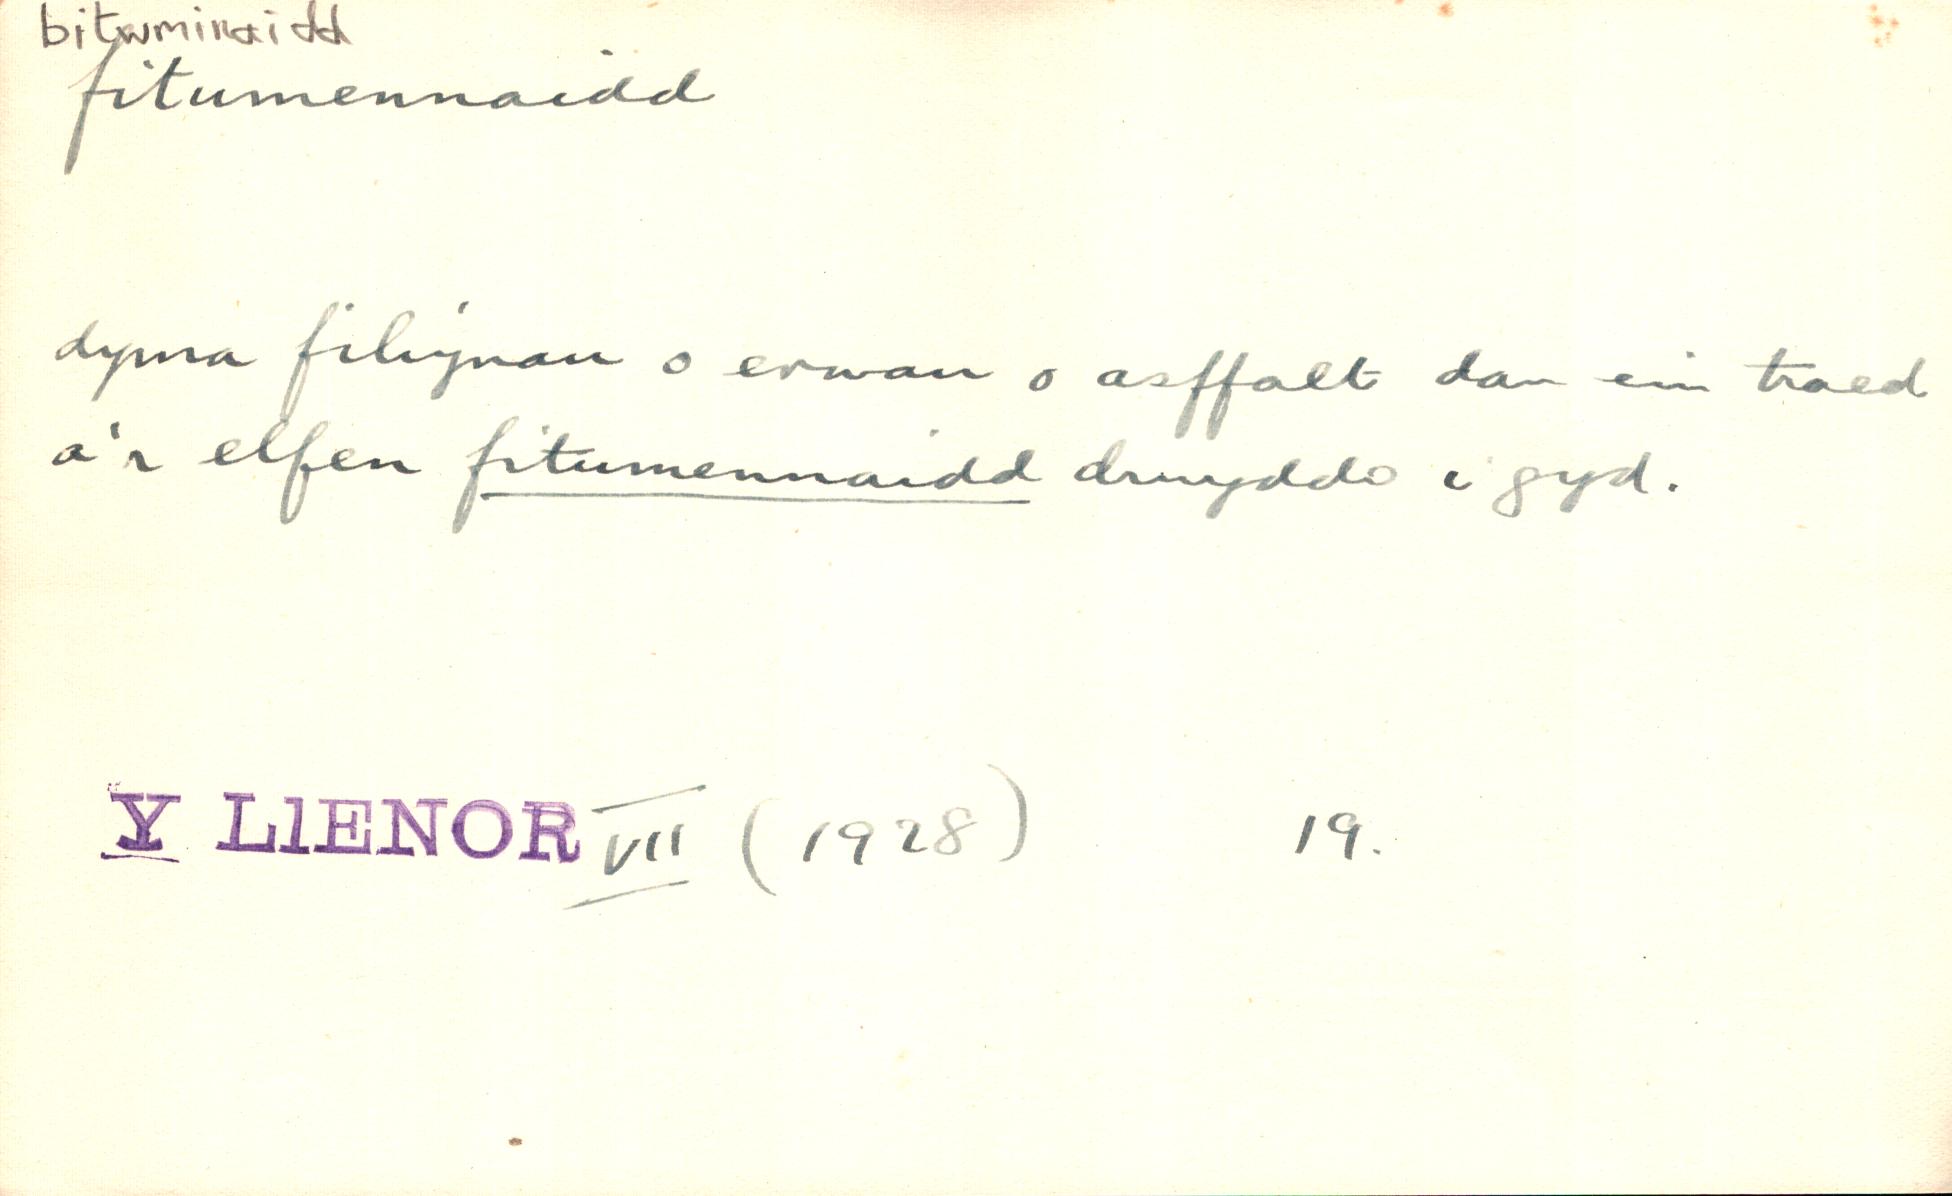 bitwminaidd
fitumennaidd
dyma filiynau o erwau o asffalt dan ein traed
a'r elfen fitumennaidd drwyddo i gyd.
Y LlENOR VII (1928) 19.